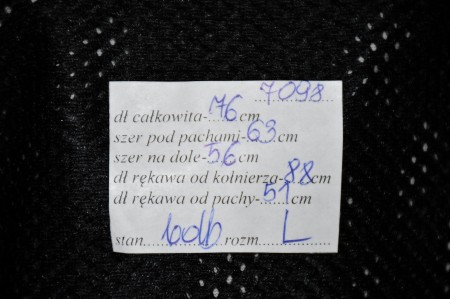 7098
dł całkowita-76cm
szer pod pachami-63cm
szer na dole-56cm
dł rękawa od kołnierza-88cm
dł rękawa od pachy-51cm
stan bdb rozm L